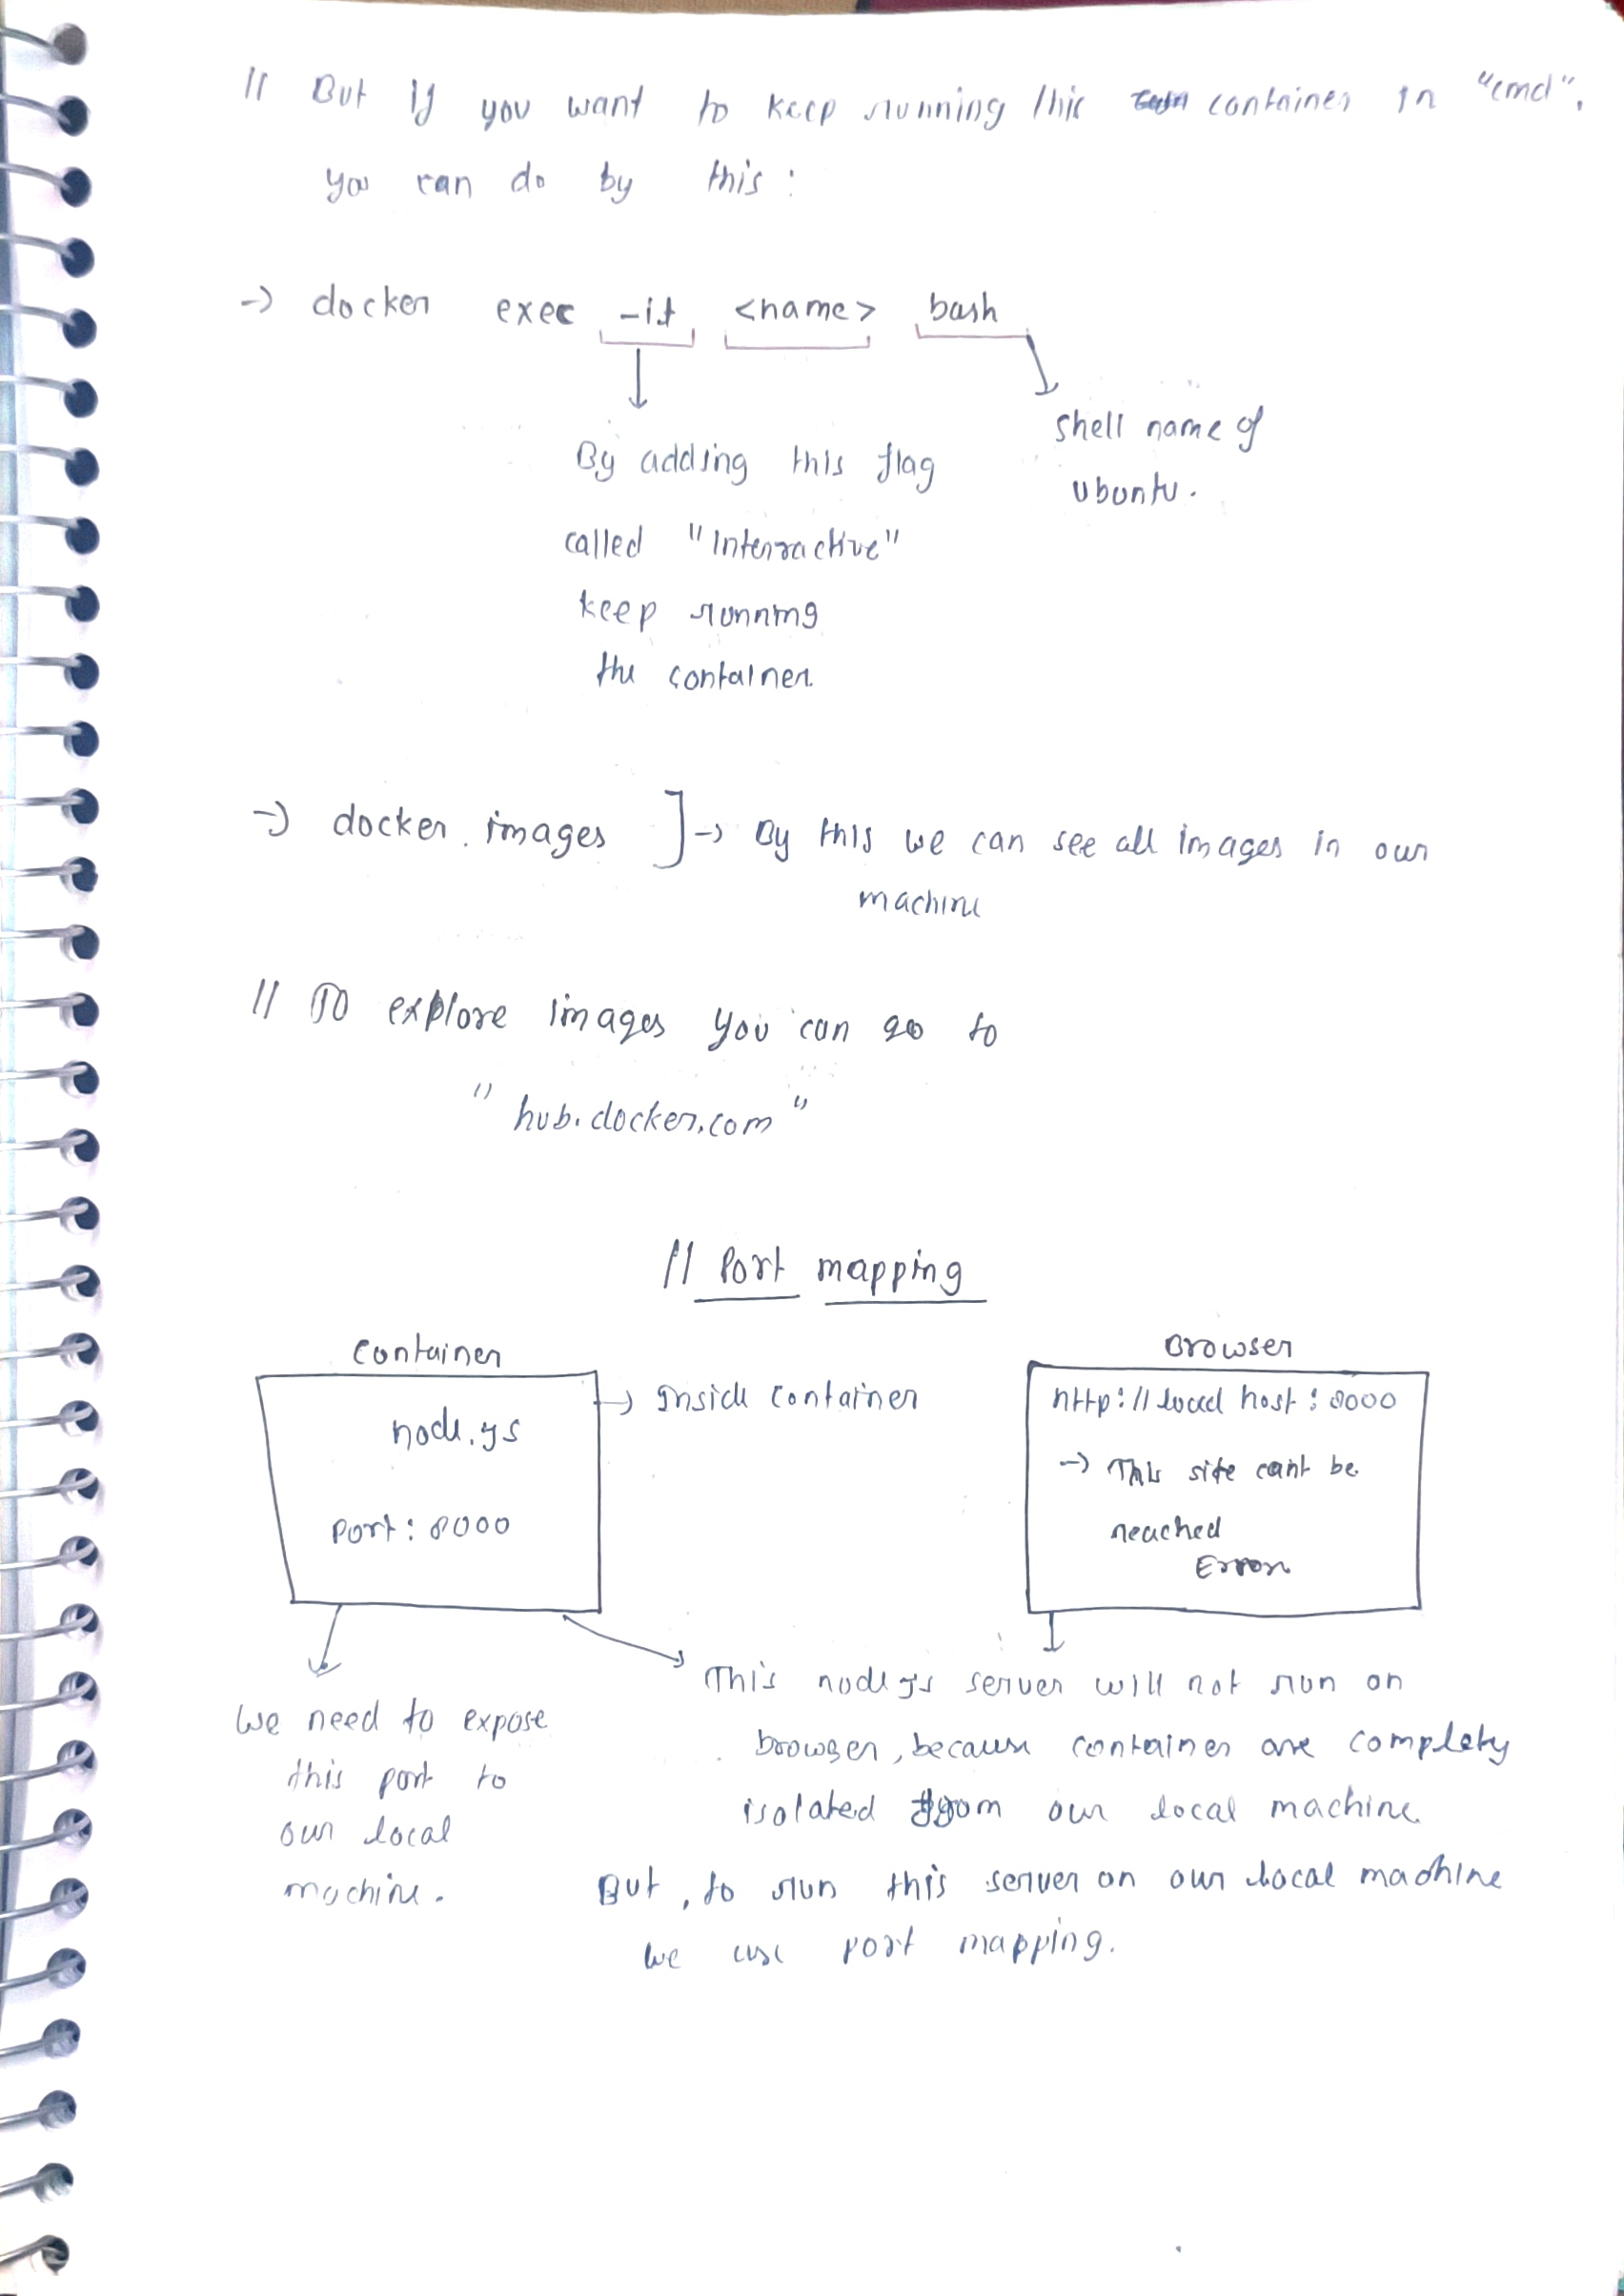 // But if you want to keep running this container in "cmd",
you can do by this :
-> docker exec -it <name> bash
shell name of
ubuntu.
By adding this flag
called "Interactive"
keep running
the container.
-> docker images ]-> By this we can see all images in our
machine
// To explore images you can go to
"hub.docker.com"
// Port mapping
Container
node.js
port : 8000
-> Inside container
Browser
http://localhost : 8000
-> This site can't be
reached
Error
We need to expose
this port to
our local
machine.
This node js server will not run on
browser, because container are complety
isolated from our local machine.
But, to run this server on our local machine
we use port mapping.